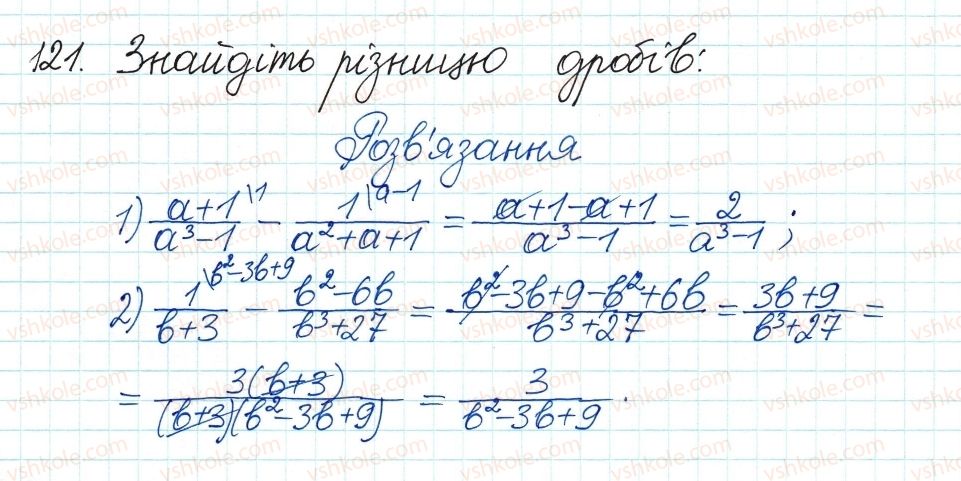 121. Знайдіть різницю дробів:
Розв'язання
1) \frac{a+1}{a^3-1}^{\1} - \frac{1}{a^2+a+1}^{\a-1} = \frac{a+1-a+1}{a^3-1} = \frac{2}{a^3-1};
2) \frac{1}{b+3}^{\b^2-3b+9} - \frac{b^2-6b}{b^3+27} = \frac{b^2-3b+9-b^2+6b}{b^3+27} = \frac{3b+9}{b^3+27} =
= \frac{3(b+3)}{(b+3)(b^2-3b+9)} = \frac{3}{b^2-3b+9}.
vshkole.com